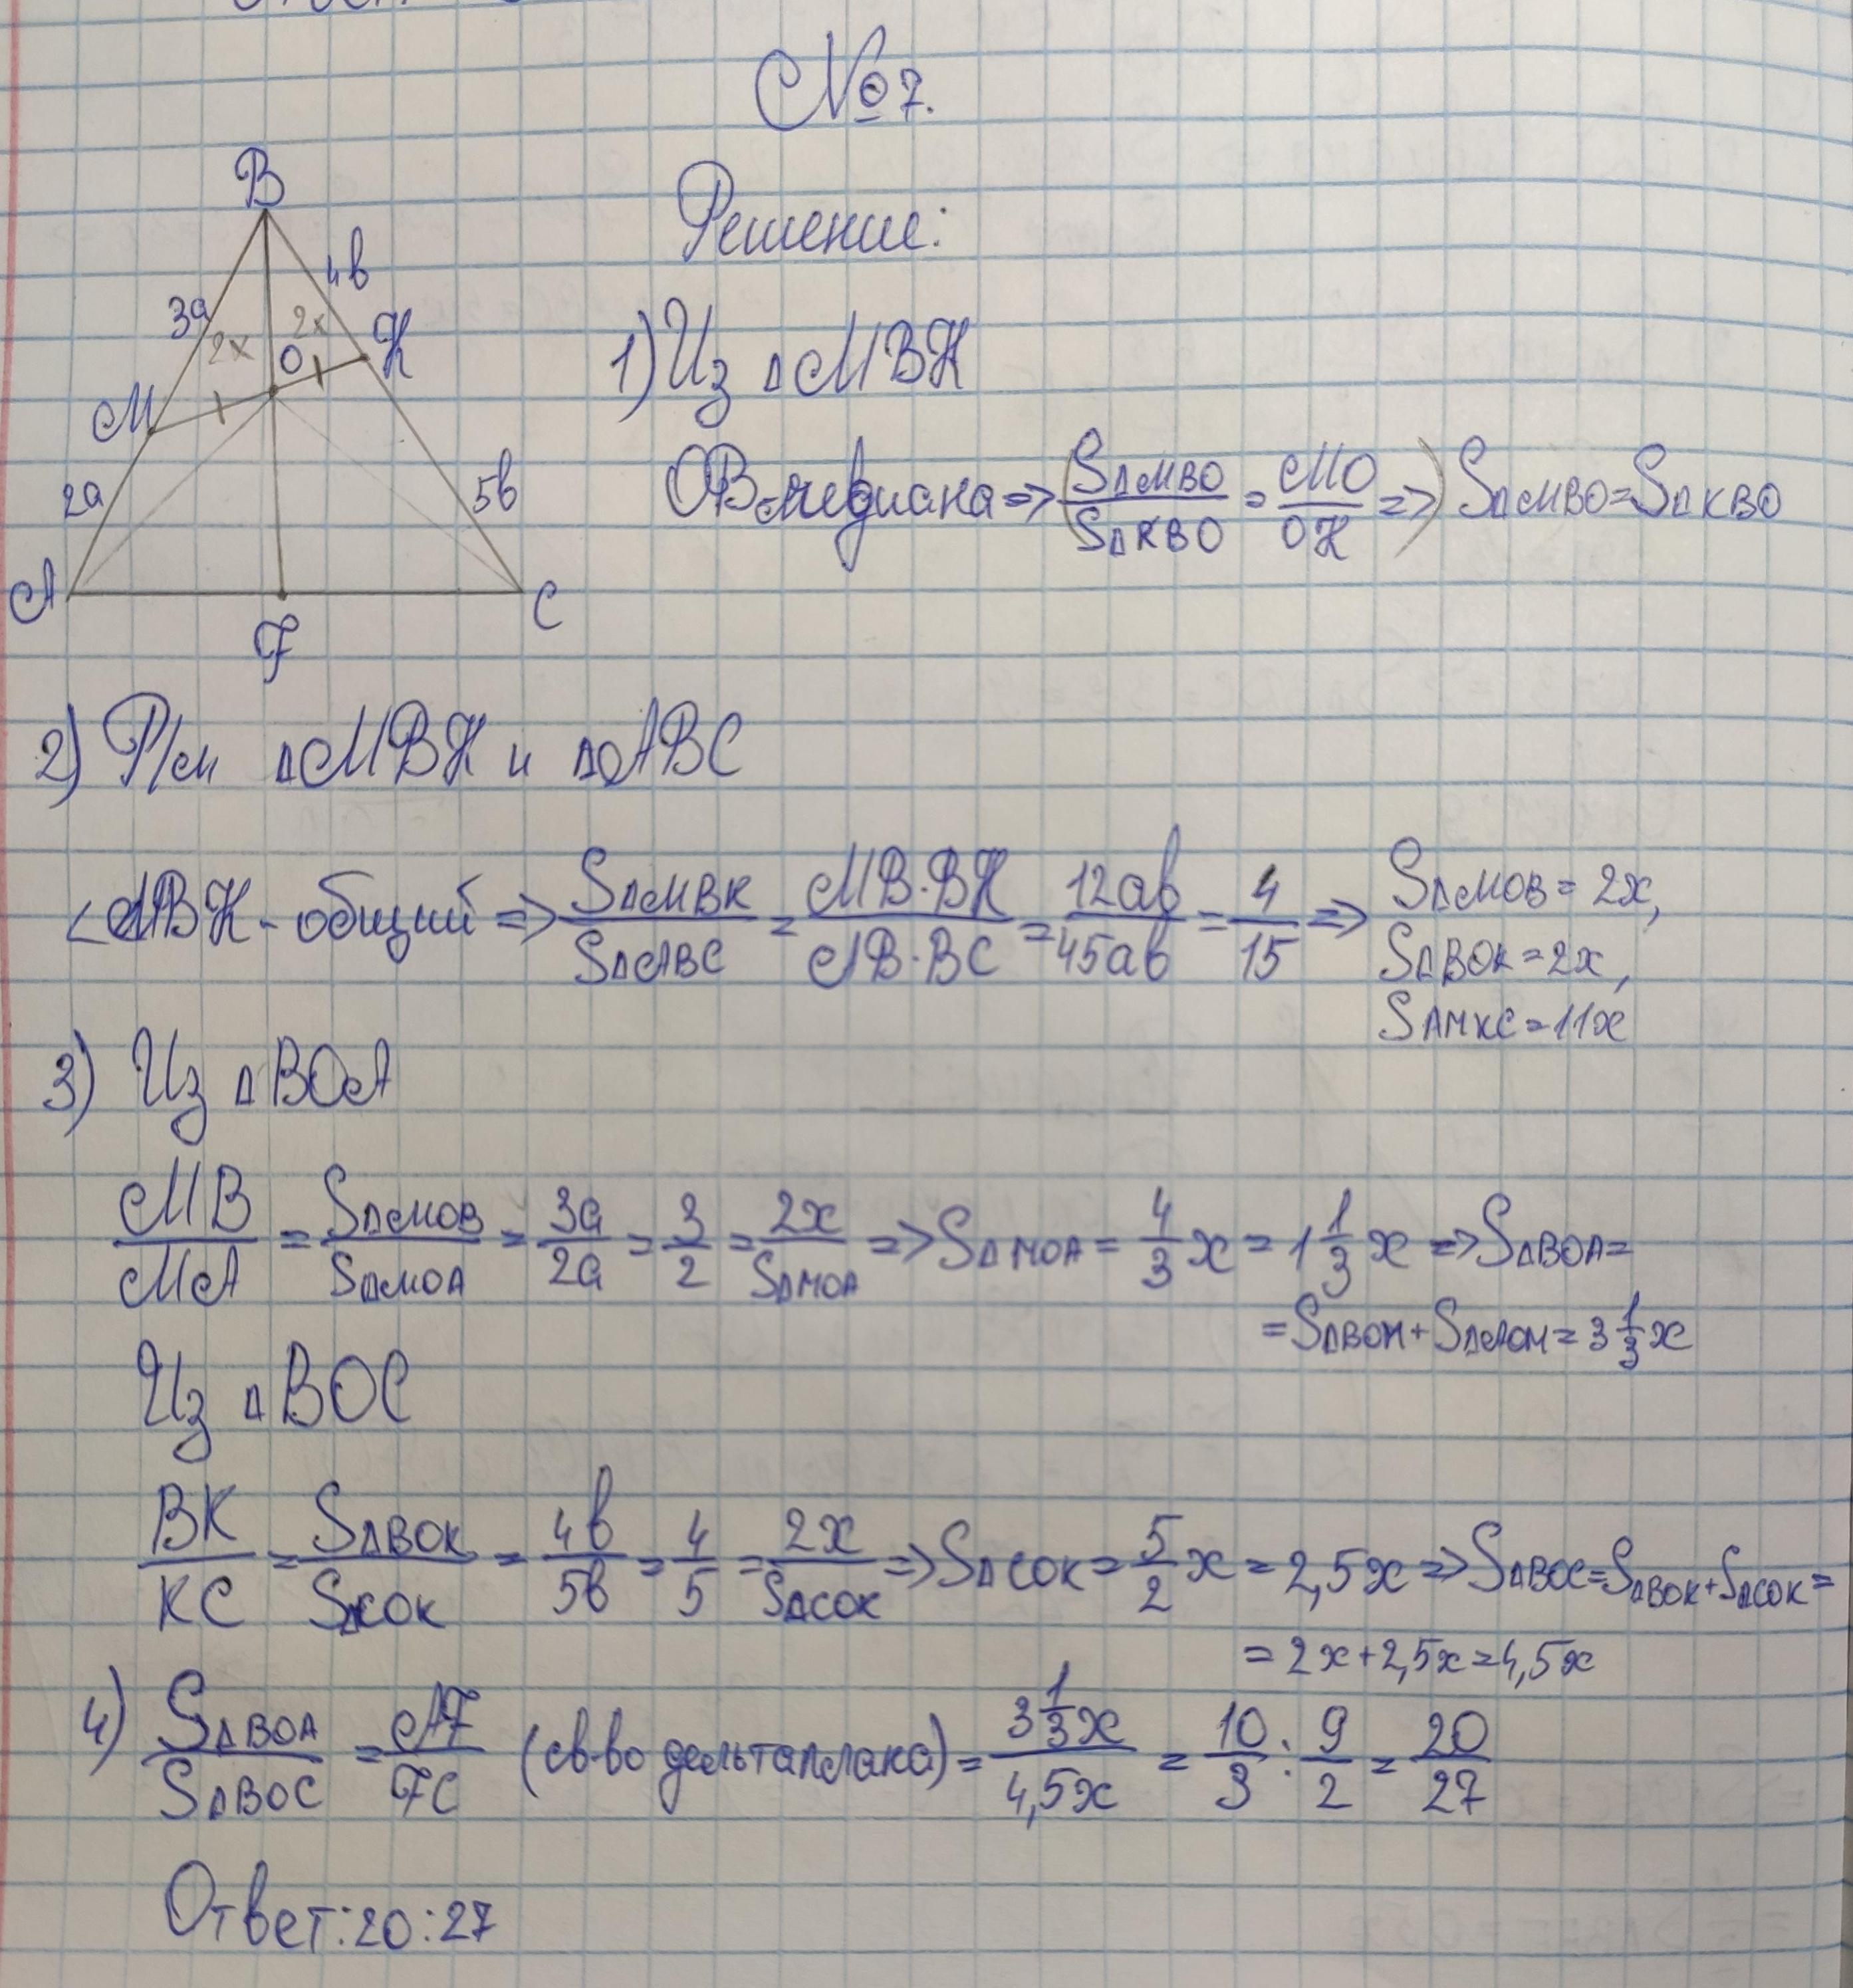 №7.
Решение:
B
4b
3a
2x
2x
O
K
M
2a
5b
A
C
F
1) Из ΔMBK
OB-медиана => (SΔMBO/SΔKBO = MO/OK =>) SΔMBO = SΔKBO
2) Р/м ΔMBK и ΔABC
<ABK - общий => SΔMBK/SΔABC = MB·BK/AB·BC = 12ab/45ab = 4/15 => SΔMOB = 2x,
SΔBOK = 2x,
SAMKC = 11x
3) Из ΔBOA
MB/MA = SΔMOB/SΔMOA = 3a/2a = 3/2 = 2x/SΔMOA => SΔMOA = 4/3 x = 1 1/3 x => SΔBOA =
= SΔBOM + SΔAOM = 3 1/3 x
Из ΔBOC
BK/KC = SΔBOK/SΔCOK = 4b/5b = 4/5 = 2x/SΔCOK => SΔCOK = 5/2 x = 2,5x => SΔBOC = SΔBOK + SΔCOK =
= 2x + 2,5x = 4,5x
4) SΔBOA/SΔBOC = AF/FC (св-во дельтаплана) = 3 1/3 x/4,5x = 10/3 : 9/2 = 20/27
Ответ: 20:27